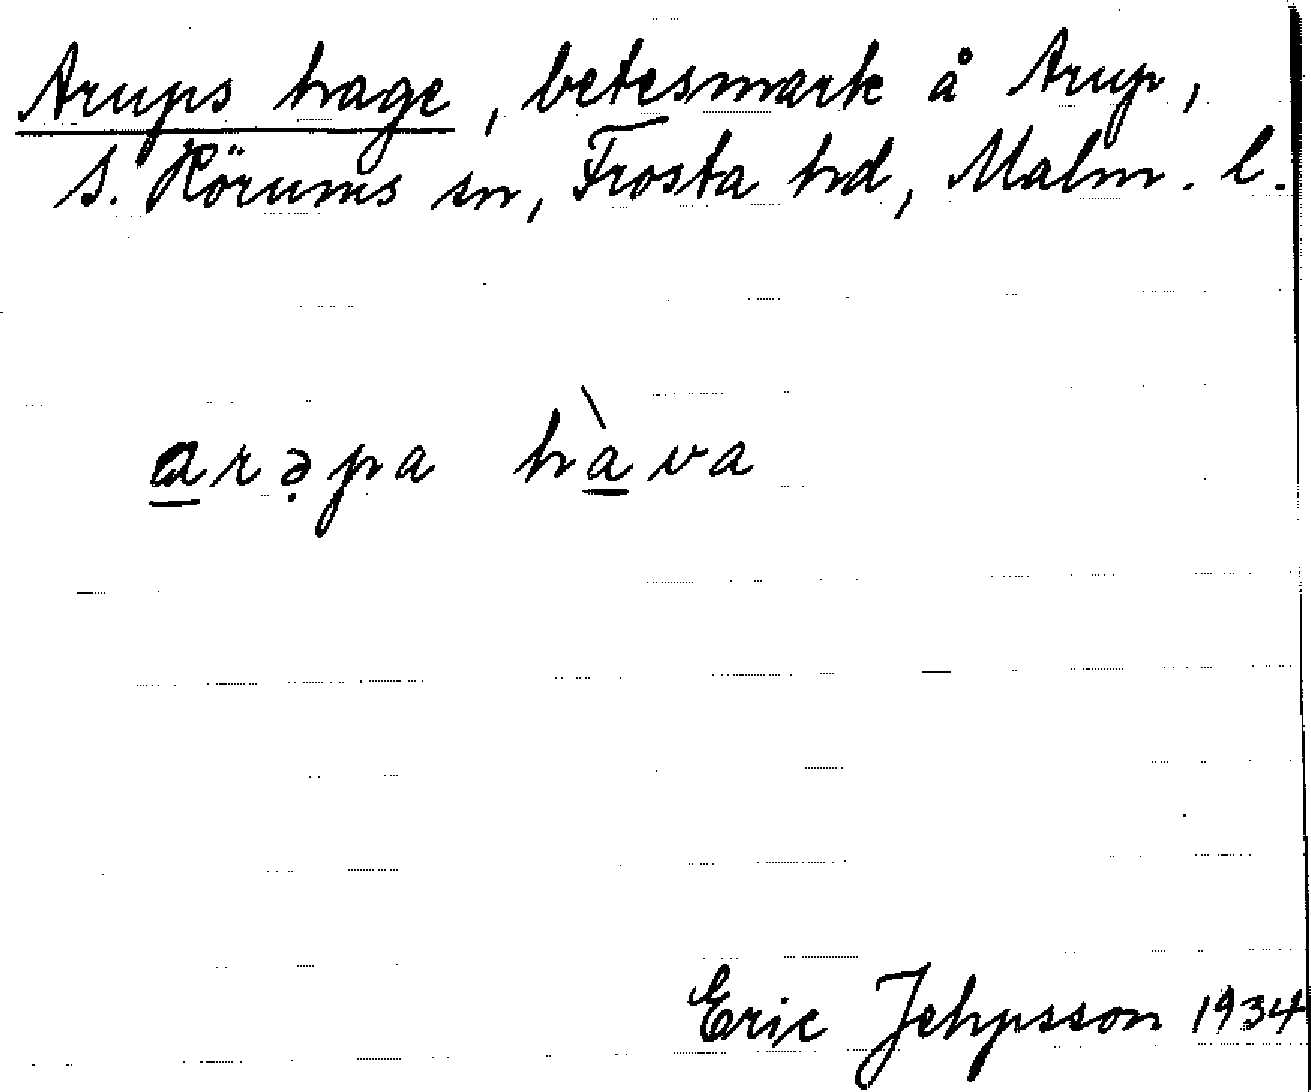 Arups hage, betesmark å Arup,
S. Hörums sn, Frosta hd, Malm. l.
arə̣pa hàva
Eric Jehpsson 1934